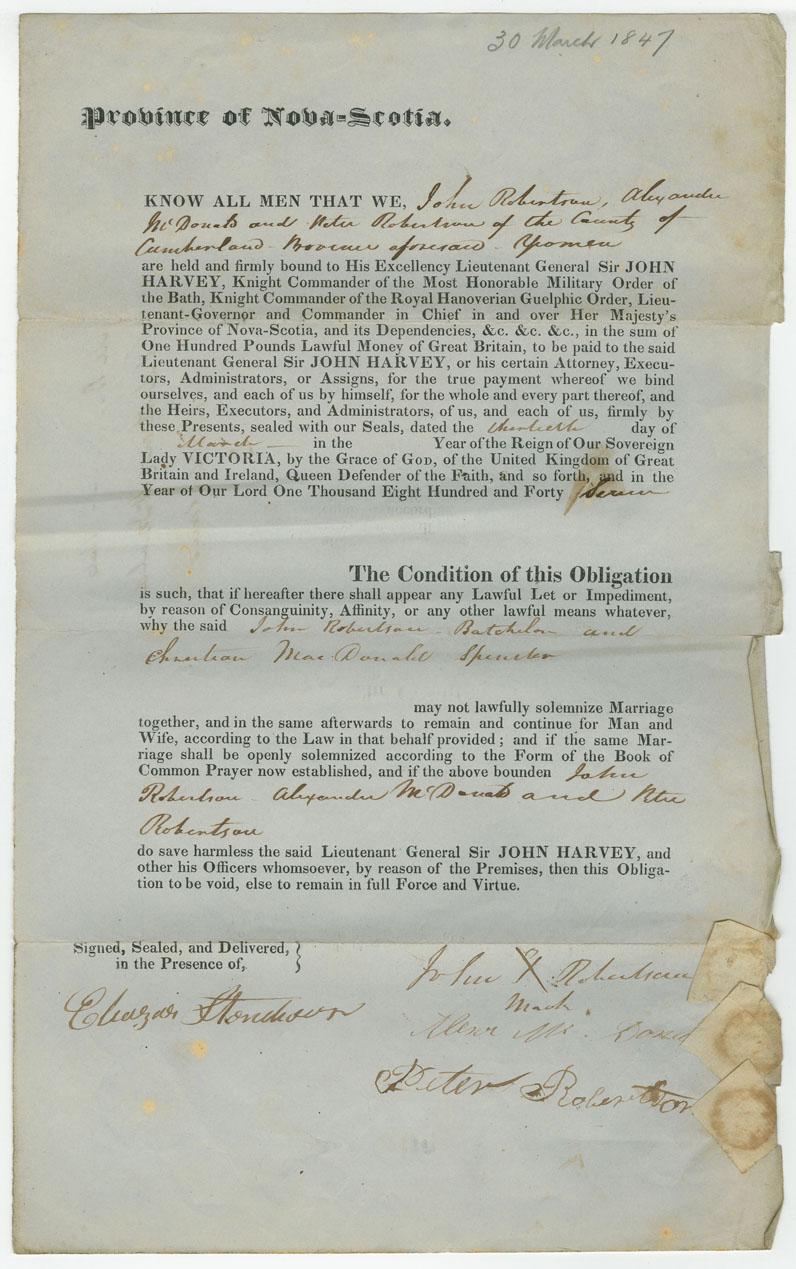 30 March 1847
Province of Nova-Scotia.
KNOW ALL MEN THAT WE, John Robertson, Alexander
McDonald and Peter Robertson of the County of
Cumberland Province aforesaid - Yeomen
are held and firmly bound to His Excellency Lieutenant General Sir JOHN
HARVEY, Knight Commander of the Most Honorable Military Order of
the Bath, Knight Commander of the Royal Hanoverian Guelphic Order, Lieu-
tenant-Governor and Commander in Chief in and over Her Majesty's
Province of Nova-Scotia, and its Dependencies, &c. &c. &c., in the sum of
One Hundred Pounds Lawful Money of Great Britain, to be paid to the said
Lieutenant General Sir JOHN HARVEY, or his certain Attorney, Execu-
tors, Administrators, or Assigns, for the true payment whereof we bind
ourselves, and each of us by himself, for the whole and every part thereof, and
the Heirs, Executors, and Administrators, of us, and each of us, firmly by
these Presents, sealed with our Seals, dated the thirtieth day of
March in the Year of the Reign of Our Sovereign
Lady VICTORIA, by the Grace of GOD, of the United Kingdom of Great
Britain and Ireland, Queen Defender of the Faith, and so forth, and in the
Year of Our Lord One Thousand Eight Hundred and Forty Seven
The Condition of this Obligation
is such, that if hereafter there shall appear any Lawful Let or Impediment,
by reason of Consanguinity, Affinity, or any other lawful means whatever,
why the said John Robertson - Batchelor and
Christian Mac Donald Spinster
may not lawfully solemnize Marriage
together, and in the same afterwards to remain and continue for Man and
Wife, according to the Law in that behalf provided; and if the same Mar-
riage shall be openly solemnized according to the Form of the Book of
Common Prayer now established, and if the above bounden John
Robertson - Alexander McDonald and Peter
Robertson
do save harmless the said Lieutenant General Sir JOHN HARVEY, and
other his Officers whomsoever, by reason of the Premises, then this Obliga-
tion to be void, else to remain in full Force and Virtue.
Signed, Sealed, and Delivered,
in the Presence of,
John X Robertson
Mark
Eleazar
Mc Donald
Peter Robertson